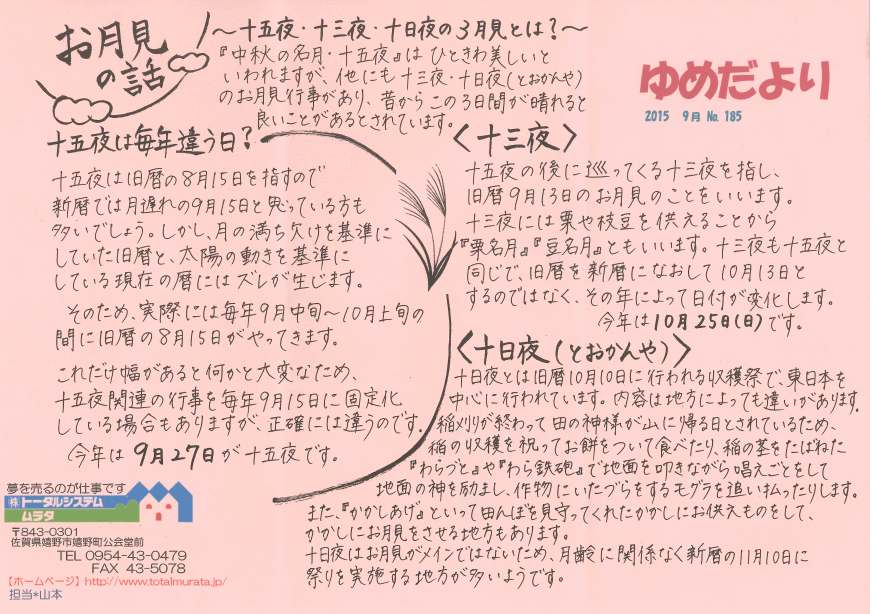 お月見
の話
〜十五夜・十三夜・十日夜の3月見とは?〜
『中秋の名月・十五夜』は ひときわ美しいと
いわれますが、他にも 十三夜・十日夜(とおかんや)
のお月見行事があり、昔から この3日間が晴れると
良いことがあるとされています。
ゆめだより
2015 9月 No. 185
十五夜は毎年違う日?
十五夜は旧暦の8月15日を指すので
新暦では月遅れの9月15日と思っている方も
多いでしょう。しかし、月の満ち欠けを基準に
していた旧暦と、太陽の動きを基準に
している現在の暦にはズレが生じます。
そのため、実際には毎年9月中旬〜10月上旬の
間に旧暦の8月15日がやってきます。
これだけ幅があると何かと大変なため、
十五夜関連の行事を毎年9月15日に固定化
している場合もありますが、正確には違うのです。
今年は 9月27日が十五夜です。
〈十三夜〉
十五夜の後に巡ってくる十三夜を指し、
旧暦9月13日のお月見のことをいいます。
十三夜には栗や枝豆を供えることから
『栗名月』『豆名月』ともいいます。十三夜も十五夜と
同じで、旧暦を新暦になおして10月13日と
するのではなく、その年によって日付が変化します。
今年は10月25日(日)です。
〈十日夜(とおかんや)〉
十日夜とは旧暦10月10日に行われる収穫祭で、東日本を
中心に行われています。内容は地方によっても違いがあります。
稲刈りが終わって田の神様が山に帰る日とされているため、
稲の収穫を祝ってお餅をついて食べたり、稲の茎をたばねた
『わらづと』や『わら鉄砲』で地面を叩きながら唱えごとをして
地面の神を励まし、作物にいたづらをするモグラを追い払ったりします。
また、『かかしあげ』といって田んぼを見守ってくれたかかしにお供えものをして、
かかしにお月見をさせる地方もあります。
十日夜はお月見がメインではないため、月齢に関係なく新暦の11月10日に
祭りを実施する地方が多いようです。
夢を売るのが仕事です
(株)トータルシステム
ムラタ
〒843-0301
佐賀県嬉野市嬉野町公会堂前
TEL 0954-43-0479
FAX 43-5078
【ホームページ】http://www.totalmurata.jp/
担当*山本